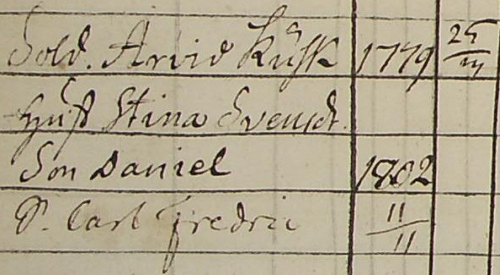 Sold. Arvid Kusk 1779 25/
Hust Stina Svensdt.
Son Daniel 1802
S. Carl Fredric 11/11